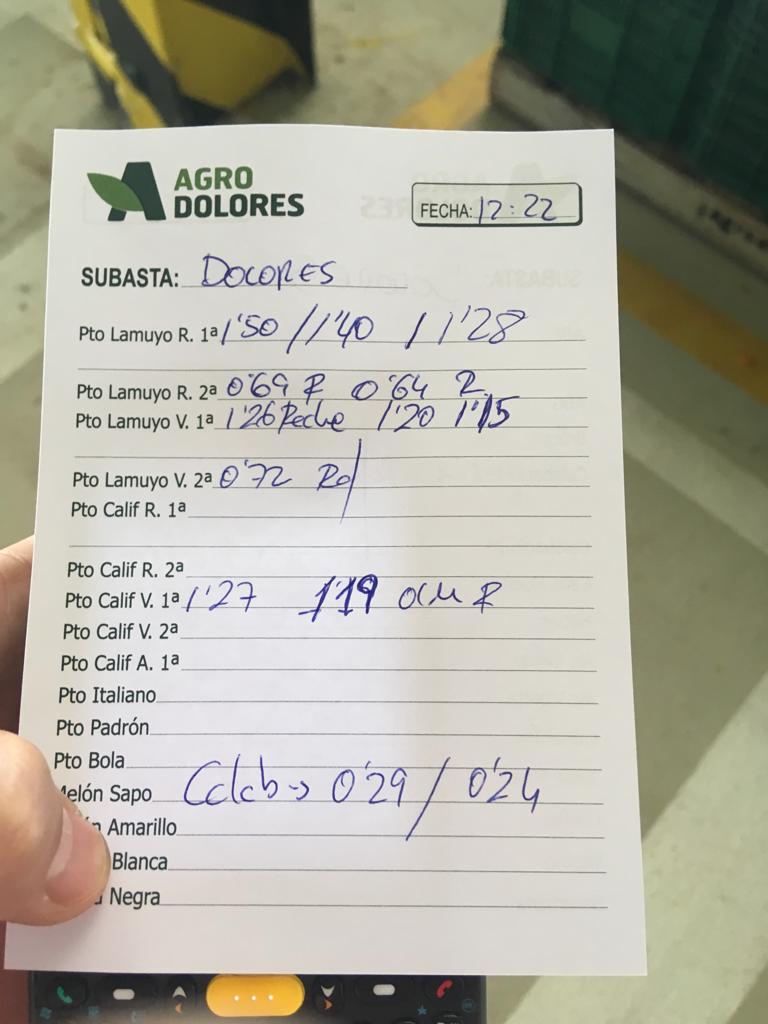 AGRO
DOLORES
FECHA: 12:22
SUBASTA: DOLORES
Pto Lamuyo R. 1ª 1'50 / 1'40 / 1'28
Pto Lamuyo R. 2ª 0'69 R 0'64 R
Pto Lamuyo V. 1ª 1'26 Peche 1'20 1'15
Pto Lamuyo V. 2ª 0'72 Rd
Pto Calif R. 1ª
Pto Calif R. 2ª
Pto Calif V. 1ª 1'27 1'19 R
Pto Calif V. 2ª
Pto Calif A. 1ª
Pto Italiano
Pto Padrón
Pto Bola
Melón Sapo Calab → 0'29 / 0'24
Amarillo
Blanca
Negra